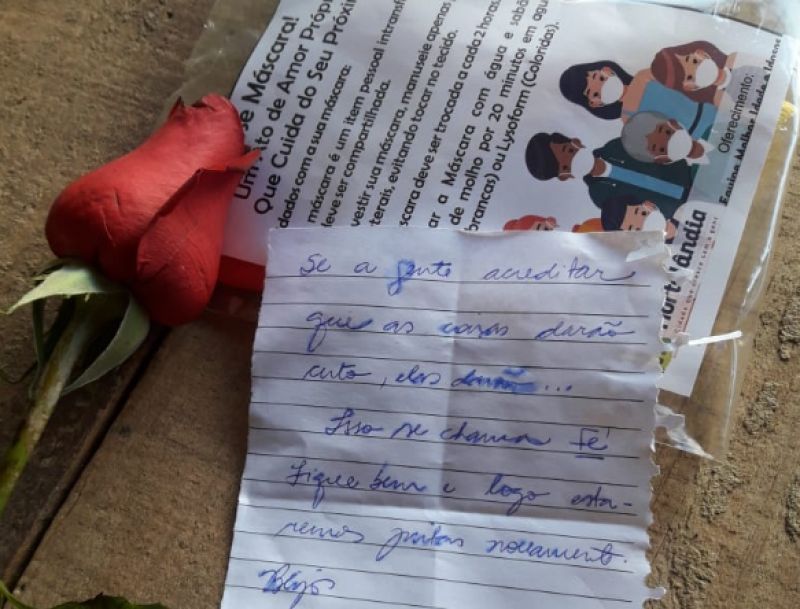 se Máscara!
Um to de Amor Própr
Que Cuida do Seu Próxi
dados com a sua máscara:
máscara é um item pessoal intransf
deve ser compartilhada.
vestir sua máscara, manuseie apenas
terais, evitando tocar no tecido.
scara deve ser trocada a cada 2 horas
ar a Máscara com água e sabã
de molho por 20 minutos em agu
brancas) ou Lysoform (Coloridas).
Oferecimento:
Melhor Idade
Hortolândia
Se a gente acreditar
que as coisas darão
certo, elas darão...
Isso se chama Fé
Fique bem e logo esta-
remos juntas novamente.
Beijos